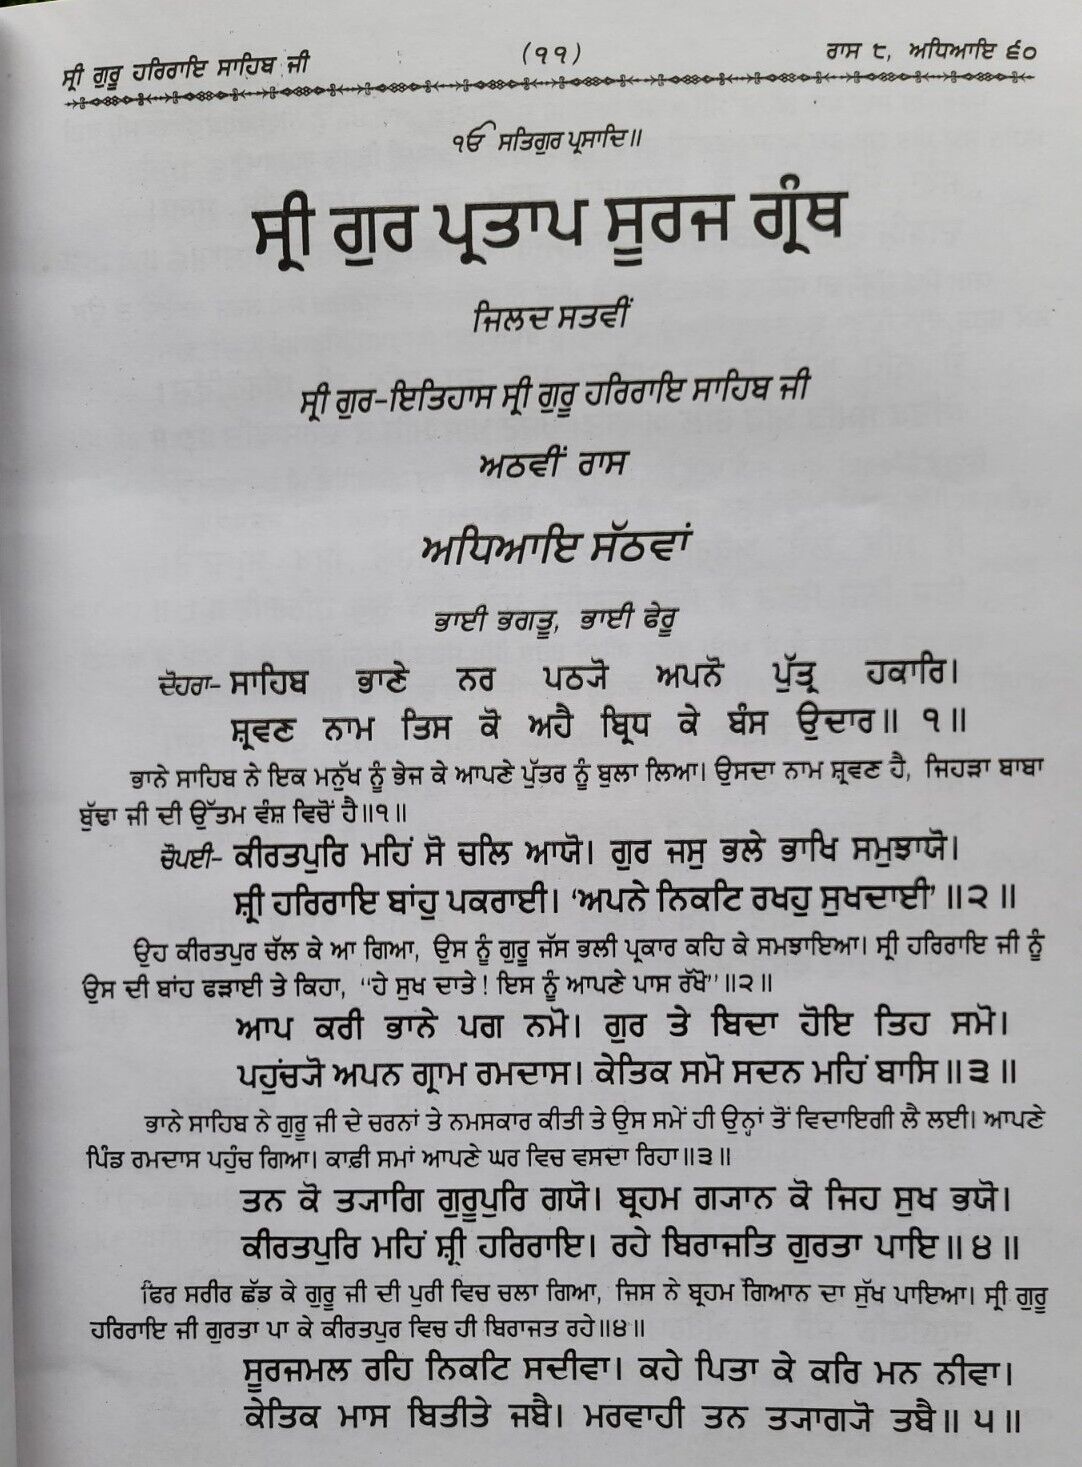 ਸ੍ਰੀ ਗੁਰੂ ਹਰਿਰਾਇ ਸਾਹਿਬ ਜੀ (੧੧) ਰਾਸ ੮, ਅਧਿਆਇ ੬੦
ੴ ਸਤਿਗੁਰ ਪ੍ਰਸਾਦਿ॥
ਸ੍ਰੀ ਗੁਰ ਪ੍ਰਤਾਪ ਸੂਰਜ ਗ੍ਰੰਥ
ਜਿਲਦ ਸਤਵੀਂ
ਸ੍ਰੀ ਗੁਰ-ਇਤਿਹਾਸ ਸ੍ਰੀ ਗੁਰੂ ਹਰਿਰਾਇ ਸਾਹਿਬ ਜੀ
ਅਠਵੀਂ ਰਾਸ
ਅਧਿਆਇ ਸੱਠਵਾਂ
ਭਾਈ ਭਗਤੂ, ਭਾਈ ਫੇਰੂ
ਦੋਹਰਾ- ਸਾਹਿਬ ਭਾਣੇ ਨਰ ਪਠਯੋ ਅਪਨੋ ਪੁੱਤ੍ਰ ਹਕਾਰਿ।
ਸ਼੍ਰਵਣ ਨਾਮ ਤਿਸ ਕੋ ਅਹੈ ਬ੍ਰਿਧ ਕੇ ਬੰਸ ਉਦਾਰ॥ ੧॥
ਭਾਨੇ ਸਾਹਿਬ ਨੇ ਇਕ ਮਨੁੱਖ ਨੂੰ ਭੇਜ ਕੇ ਆਪਣੇ ਪੁੱਤਰ ਨੂੰ ਬੁਲਾ ਲਿਆ। ਉਸਦਾ ਨਾਮ ਸ਼੍ਰਵਣ ਹੈ, ਜਿਹੜਾ ਬਾਬਾ
ਬੁੱਢਾ ਜੀ ਦੀ ਉੱਤਮ ਵੰਸ਼ ਵਿਚੋਂ ਹੈ॥੧॥
ਚੌਪਈ- ਕੀਰਤਪੁਰਿ ਮਹਿਂ ਸੋ ਚਲਿ ਆਯੋ। ਗੁਰ ਜਸੁ ਭਲੇ ਭਾਖਿ ਸਮੁਝਾਯੋ।
ਸ਼੍ਰੀ ਹਰਿਰਾਇ ਬਾਂਹੁ ਪਕਰਾਈ। ‘ਅਪਨੇ ਨਿਕਟਿ ਰਖਹੁ ਸੁਖਦਾਈ’॥੨॥
ਉਹ ਕੀਰਤਪੁਰ ਚੱਲ ਕੇ ਆ ਗਿਆ, ਉਸ ਨੂੰ ਗੁਰੂ ਜੱਸ ਭਲੀ ਪ੍ਰਕਾਰ ਕਹਿ ਕੇ ਸਮਝਾਇਆ। ਸ੍ਰੀ ਹਰਿਰਾਇ ਜੀ ਨੂੰ
ਉਸ ਦੀ ਬਾਂਹ ਫੜਾਈ ਤੇ ਕਿਹਾ, “ਹੇ ਸੁਖ ਦਾਤੇ! ਇਸ ਨੂੰ ਆਪਣੇ ਪਾਸ ਰੱਖੋ”॥੨॥
ਆਪ ਕਰੀ ਭਾਨੇ ਪਗ ਨਮੋ। ਗੁਰ ਤੇ ਬਿਦਾ ਹੋਇ ਤਿਹ ਸਮੋ।
ਪਹੁਂਚਯੋ ਅਪਨ ਗ੍ਰਾਮ ਰਮਦਾਸ। ਕੇਤਿਕ ਸਮੋ ਸਦਨ ਮਹਿਂ ਬਾਸਿ॥੩॥
ਭਾਨੇ ਸਾਹਿਬ ਨੇ ਗੁਰੂ ਜੀ ਦੇ ਚਰਨਾਂ ਤੇ ਨਮਸਕਾਰ ਕੀਤੀ ਤੇ ਉਸ ਸਮੇਂ ਹੀ ਉਨ੍ਹਾਂ ਤੋਂ ਵਿਦਾਇਗੀ ਲੈ ਲਈ। ਆਪਣੇ
ਪਿੰਡ ਰਮਦਾਸ ਪਹੁੰਚ ਗਿਆ। ਕਾਫ਼ੀ ਸਮਾਂ ਆਪਣੇ ਘਰ ਵਿਚ ਵਸਦਾ ਰਿਹਾ॥੩॥
ਤਨ ਕੋ ਤਯਾਗਿ ਗੁਰੂਪੁਰਿ ਗਯੋ। ਬ੍ਰਹਮ ਗਯਾਨ ਕੋ ਜਿਹ ਸੁਖ ਭਯੋ।
ਕੀਰਤਪੁਰਿ ਮਹਿਂ ਸ਼੍ਰੀ ਹਰਿਰਾਇ। ਰਹੇ ਬਿਰਾਜਤਿ ਗੁਰਤਾ ਪਾਇ॥੪॥
ਫਿਰ ਸਰੀਰ ਛੱਡ ਕੇ ਗੁਰੂ ਜੀ ਦੀ ਪੁਰੀ ਵਿਚ ਚਲਾ ਗਿਆ, ਜਿਸ ਨੇ ਬ੍ਰਹਮ ਗਿਆਨ ਦਾ ਸੁੱਖ ਪਾਇਆ। ਸ੍ਰੀ ਗੁਰੂ
ਹਰਿਰਾਇ ਜੀ ਗੁਰਤਾ ਪਾ ਕੇ ਕੀਰਤਪੁਰ ਵਿਚ ਹੀ ਬਿਰਾਜਤ ਰਹੇ॥੪॥
ਸੂਰਜਮਲ ਰਹਿ ਨਿਕਟਿ ਸਦੀਵਾ। ਕਹੇ ਪਿਤਾ ਕੇ ਕਰਿ ਮਨ ਨੀਵਾ।
ਕੇਤਿਕ ਮਾਸ ਬਿਤੀਤੇ ਜਬੈ। ਮਰਵਾਹੀ ਤਨ ਤਯਾਗਯੋ ਤਬੈ॥ ੫॥